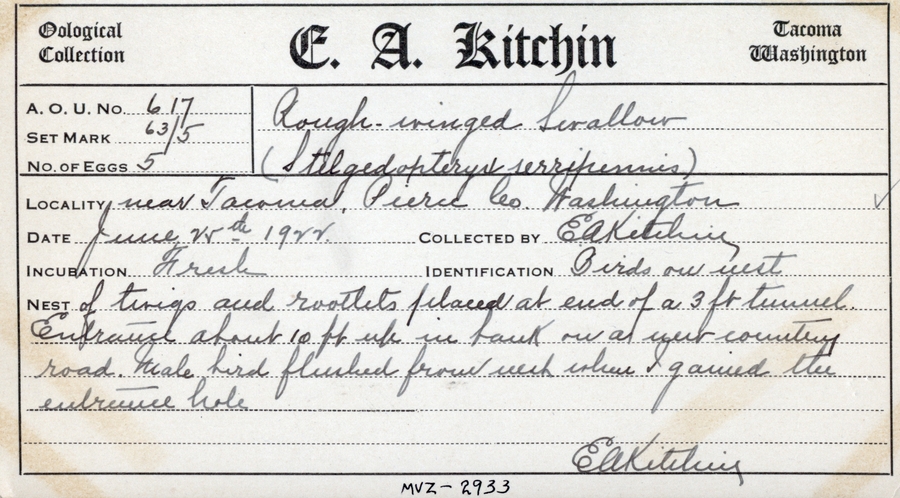 Oological Collection
E. A. Kitchin
Tacoma Washington
A. O. U. No. 617
Set Mark 63/5
No. of Eggs 5
Rough-winged Swallow
(Stelgedopteryx serripennis)
Locality near Tacoma, Pierce Co. Washington ✓
Date June 25th 1922 Collected by EAKitchin
Incubation Fresh Identification Birds on nest
Nest of twigs and rootlets placed at end of a 3 ft tunnel.
Entrance about 10 ft up in bank on a new country
road. Male bird flushed from nest when I gained the
entrance hole
EAKitchin
MVZ-2933